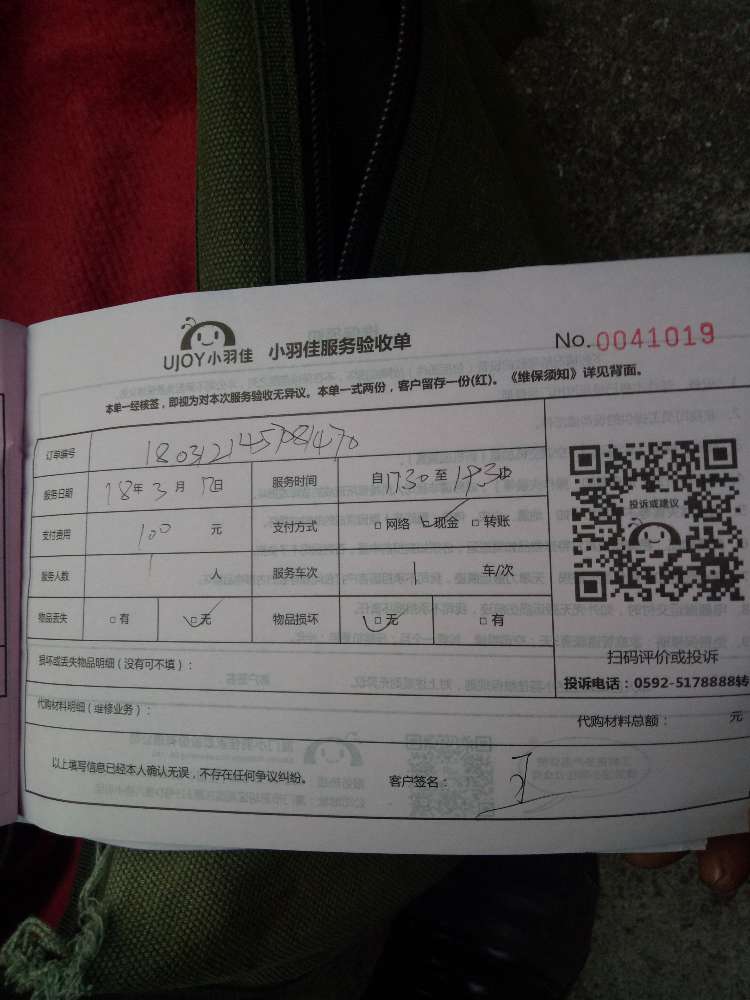 UJOY小羽佳 小羽佳服务验收单 No.0041019
本单一经核签，即视为对本次服务验收无异议。本单一式两份，客户留存一份(红)。《维保须知》详见背面。
订单编号 1803121457081470
服务日期 18年 3 月 17日 服务时间 自1730 至 1930
支付费用 100 元 支付方式 □ 网络 □ 现金 □ 转账
服务人数 1 人 服务车次 1 车/次
物品丢失 □ 有 □ 无 物品损坏 □ 无 □ 有
投诉或建议
损坏或丢失物品明细（没有可不填）：
扫码评价或投诉
投诉电话：0592-5178888转
代购材料明细（维修业务）：
代购材料总额： 元
以上填写信息已经本人确认无误，不存在任何争议纠纷。 客户签名：